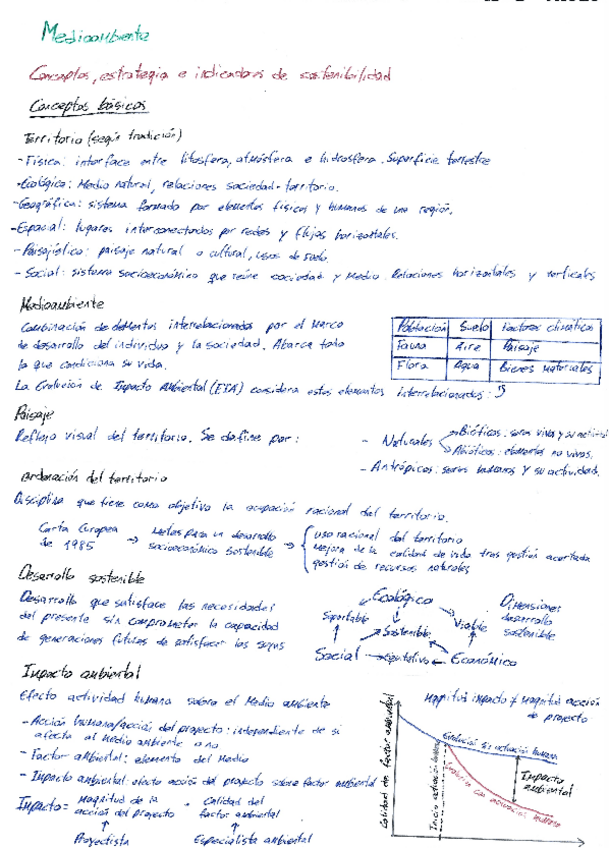 Medioambiente
Conceptos, estrategia e indicadores de sostenibilidad
Conceptos básicos
Territorio (según tradición)
- Física: interface entre litosfera, atmósfera e hidrosfera. Superficie terrestre
- Ecológica: Medio natural, relaciones sociedad-territorio.
- Geográfica: sistema formado por elementos físicos y humanos de una región.
- Espacial: lugares interconectados por redes y flujos horizontales.
- Paisajística: paisaje natural o cultural, usos de suelo.
- Social: sistema socioeconómico que reúne sociedad y Medio. Relaciones horizontales y verticales
Medioambiente
Combinación de elementos interrelacionados por el Marco
de desarrollo del individuo y la sociedad. Abarca todo
lo que condiciona su vida.
La Evaluación de Impacto Ambiental (EIA) considera estos elementos interrelacionados:
Población Suelo Factores climáticos
Fauna Aire Paisaje
Flora Agua Bienes materiales
Paisaje
Reflejo visual del territorio. Se define por:
- Naturales
Bióticos: seres vivos y su actividad
Abióticos: elementos no vivos.
- Antrópicos: seres humanos y su actividad.
Ordenación del territorio
Disciplina que tiene como objetivo la ocupación racional del territorio.
Carta Europea
de 1985
→ Metas para un desarrollo
socioeconómico sostenible →
uso racional del territorio
mejora de la calidad de vida tras gestión acertada
gestión de recursos naturales
Desarrollo sostenible
Desarrollo que satisface las necesidades
del presente sin comprometer la capacidad
de generaciones futuras de satisfacer las suyas
Ecológico
Soportable
Sostenible
Viable
Social → Equitativo ← Económico
Dimensiones
desarrollo
sostenible
Impacto ambiental
Efecto actividad humana sobre el Medio ambiente
- Acción humana/acción del proyecto: independiente de si
afecta al medio ambiente o no
- Factor ambiental: elemento del Medio
- Impacto ambiental: efecto acción del proyecto sobre factor ambiental
Impacto = Magnitud de la
acción del proyecto · Calidad del
factor ambiental
Proyectista
Especialista ambiental
Magnitud impacto ≠ Magnitud acción
de proyecto
Calidad de factor ambiental
Inicio actuación humana
Evolución sin actuación humana
Evolución con actuación humana
Impacto
ambiental